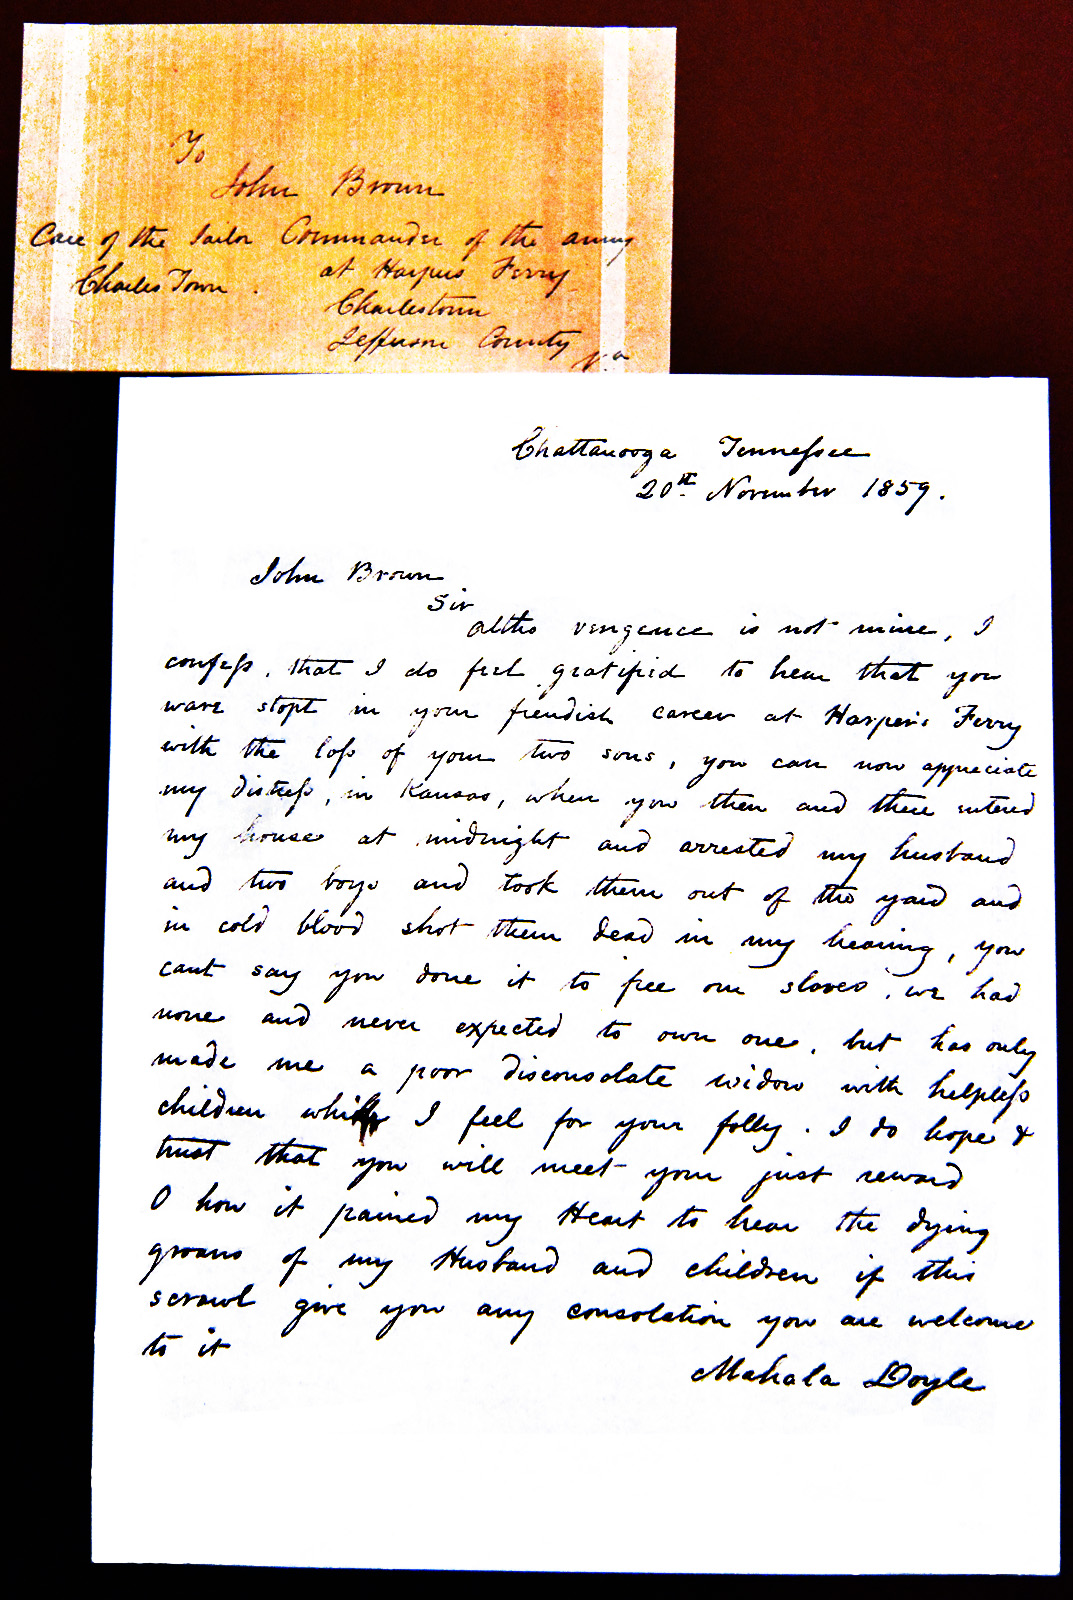 To
John Brown
Care of the Jailor Commander of the army
Charles Town . at Harpers Ferry
Charlestown
Jefferson County
Va
Chattanooga Tennessee
20th November 1859.
John Brown
Sir
Altho vengence is not mine, I
confess, that I do feel gratified to hear that you
ware stopt in your fiendish career at Harper's Ferry
with the loss of your two sons, you can now appreciate
my distress, in Kansas, when you then and there entered
my house at midnight and arrested my husband
and two boys and took them out of the yard and
in cold blood shot them dead in my hearing, you
cant say you done it to free our slaves, we had
none and never expected to own one, but has only
made me a poor disconsolate widow with helpless
children while I feel for your folly. I do hope &
trust that you will meet your just reward
O how it pained my Heart to hear the dying
groans of my Husband and children if this
scrawl give you any consolation you are welcome
to it
Mahala Doyle